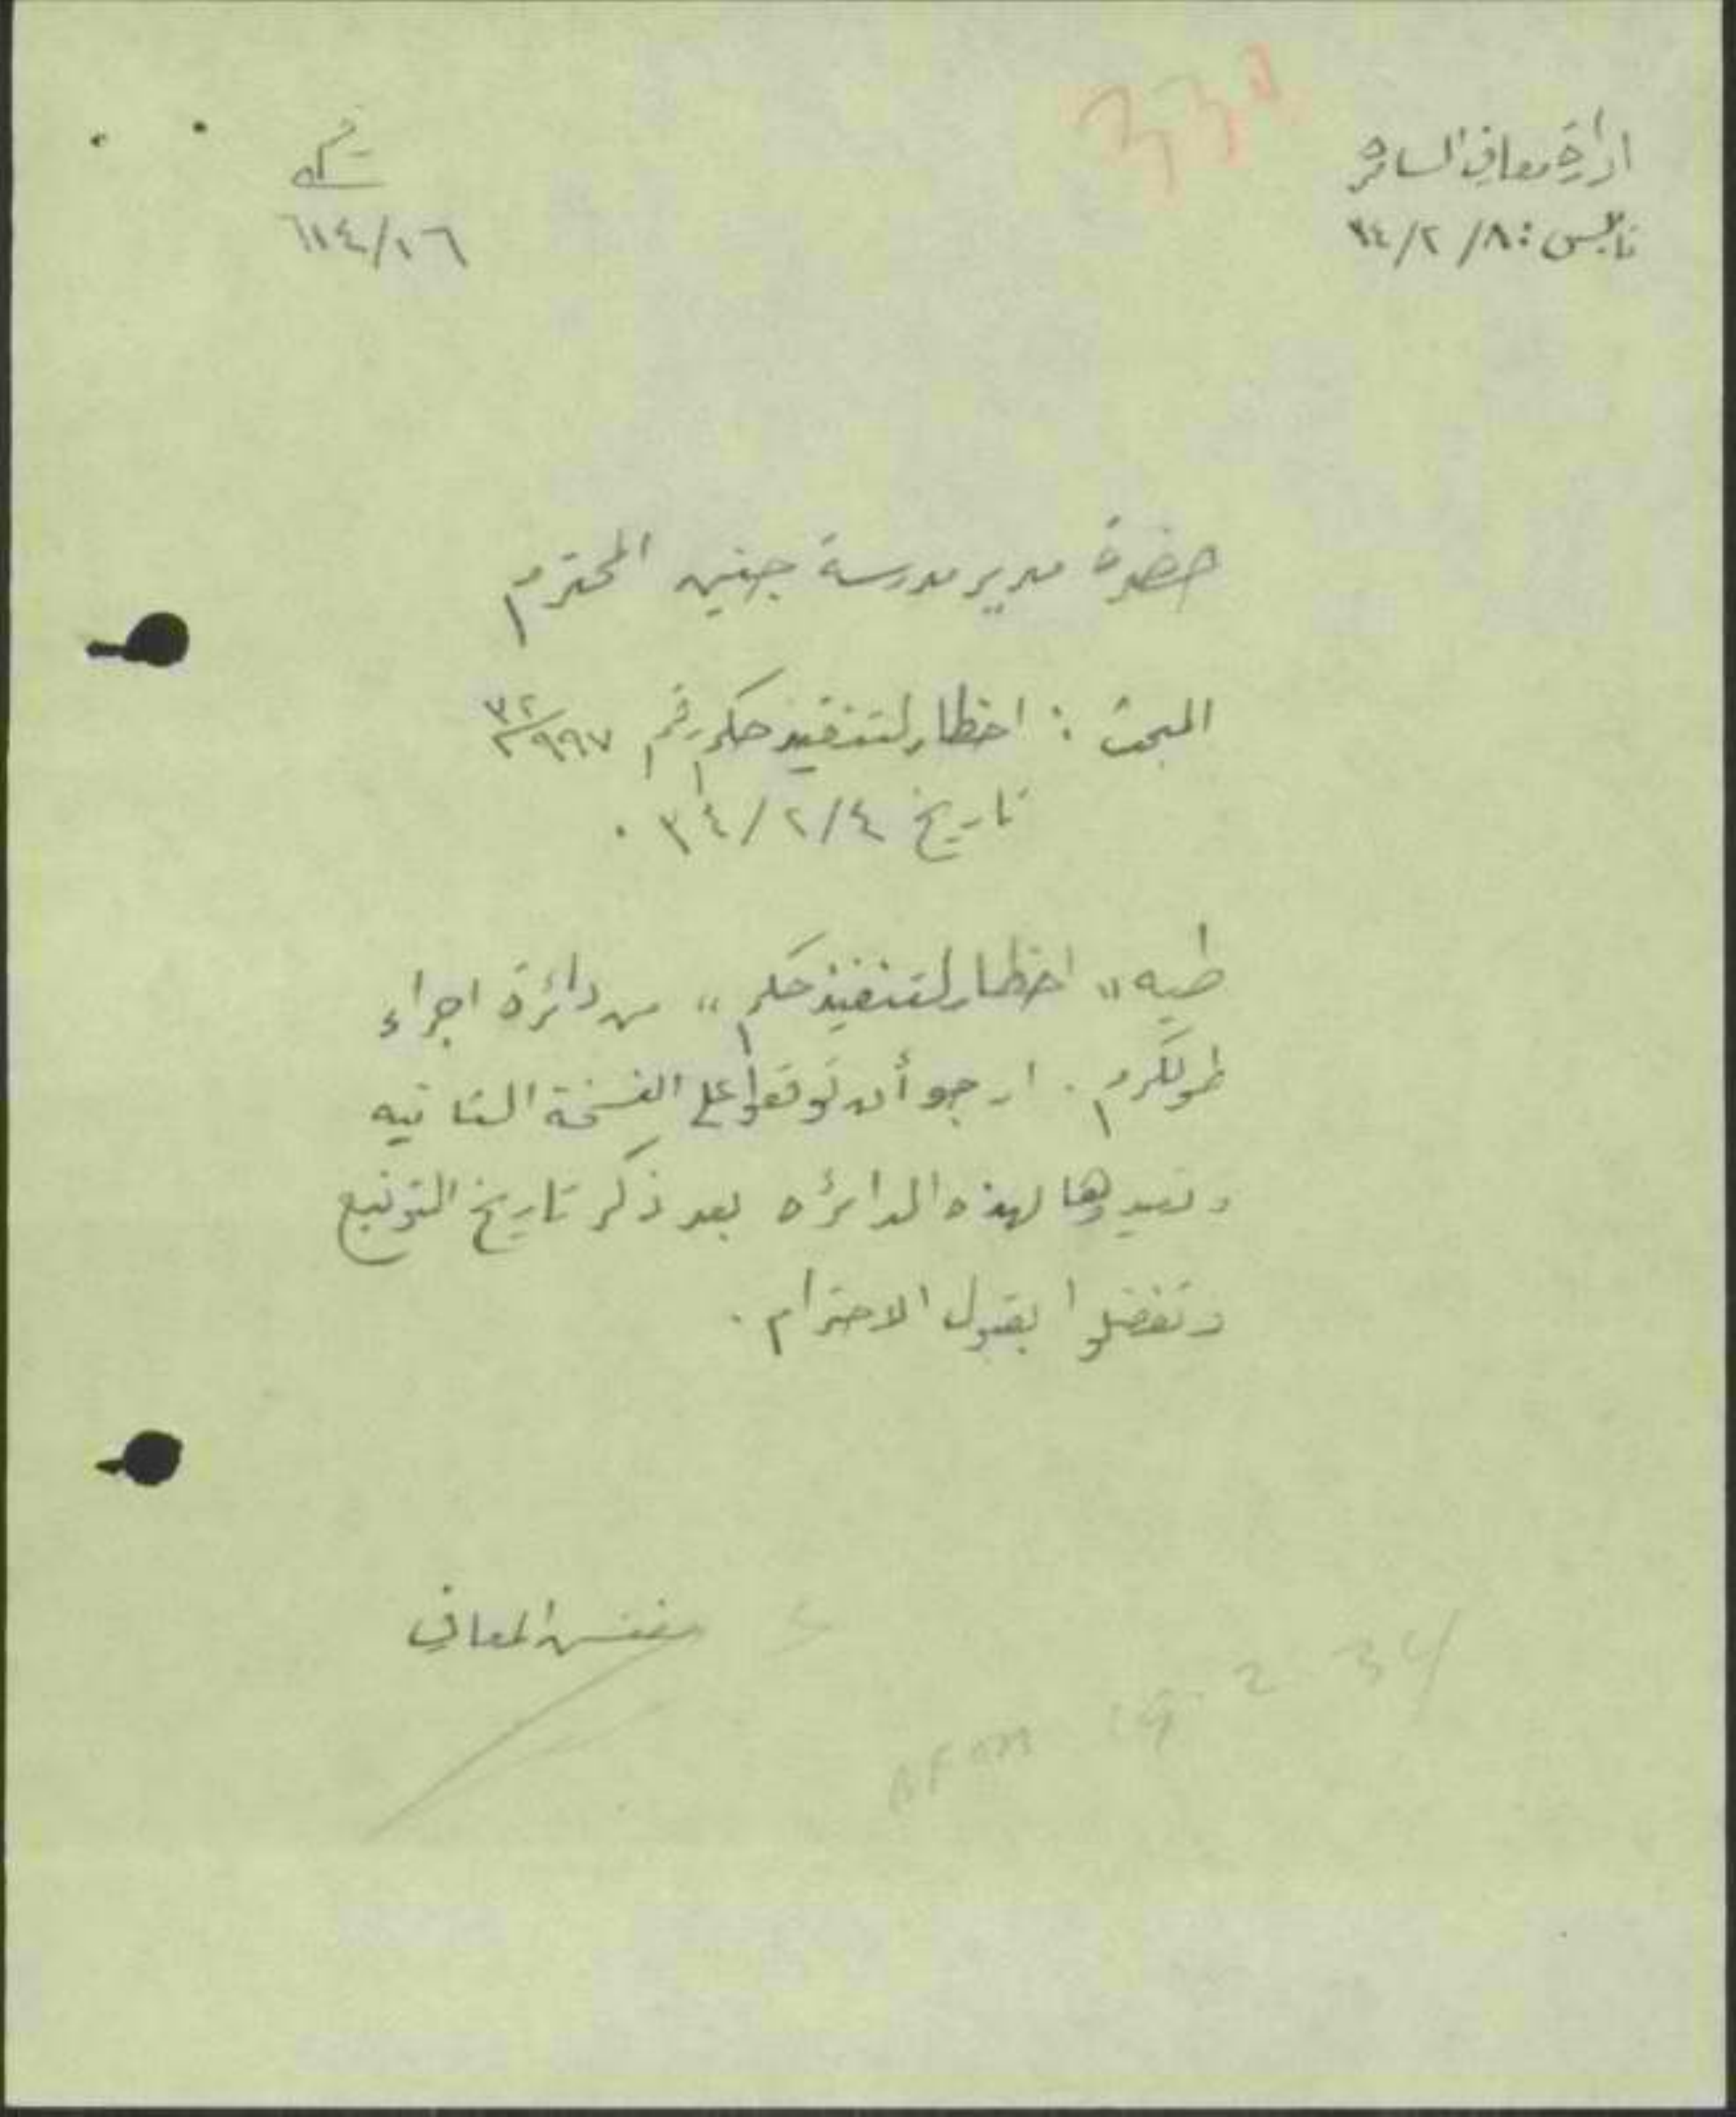 ادارة معارف السامره
نابلس: ٨/ ٢/ ٣٤
٦١٤/١٦
حضرة مدير مدرسة جنين المحترم
المبحث : اخطار لتنفيذ حكم رقم ٩٩٧/٣٢
تاريخ ٣٤/٢/٤ .
طيه " اخطار لتنفيذ حكم " من دائرة اجراء
طولكرم . ارجو أن توقعوا على النسخة الثانيه
وتعيدوها لهذه الدائره بعد ذكر تاريخ التوقيع
وتفضلوا بقبول الاحترام .
مفتش المعارف
19-2-34